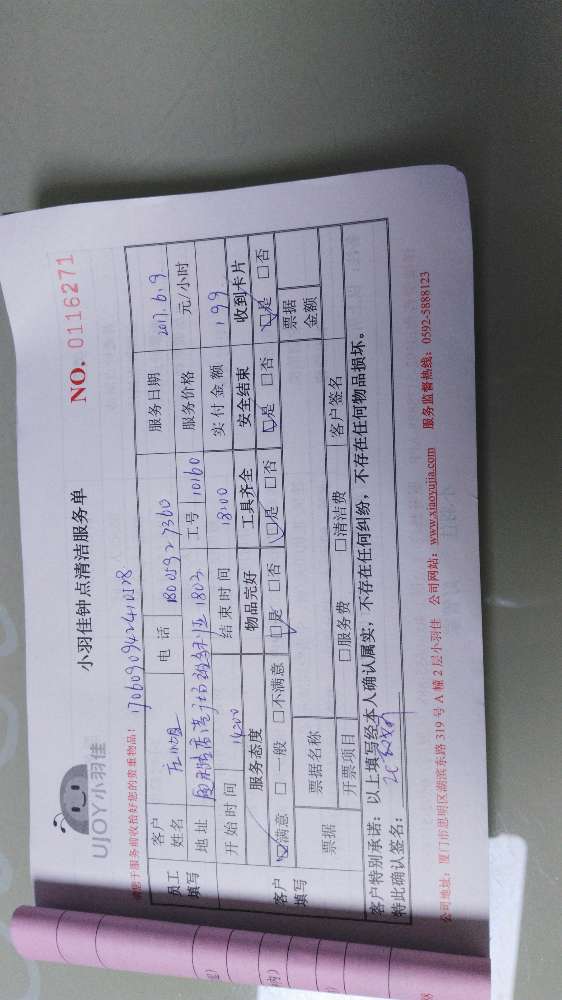 UJOY小羽佳
小羽佳钟点清洁服务单
NO. 0116271
于服务前收拾好您的贵重物品!
员工填写
客户姓名
电话
服务日期 2017.6.9
地址 1803
工号 110160
服务价格 元/小时
开始时间 14:00 结束时间 18:00 实付金额 199
客户填写
服务态度 物品完好 工具齐全 安全结束 收到卡片
☑满意 □一般 □不满意 ☑是 □否 ☑是 □否 ☑是 □否 ☑是 □否
票据 票据名称 票据金额
开票项目 □服务费 □清洁费 客户签名
客户特别承诺：以上填写经本人确认属实，不存在任何纠纷，不存在任何物品损坏。
特此确认签名：
公司地址：厦门市思明区湖滨东路 319 号 A 幢 2 层小羽佳 公司网站：www.xiaoyujia.com 服务监督热线：0592-5888123